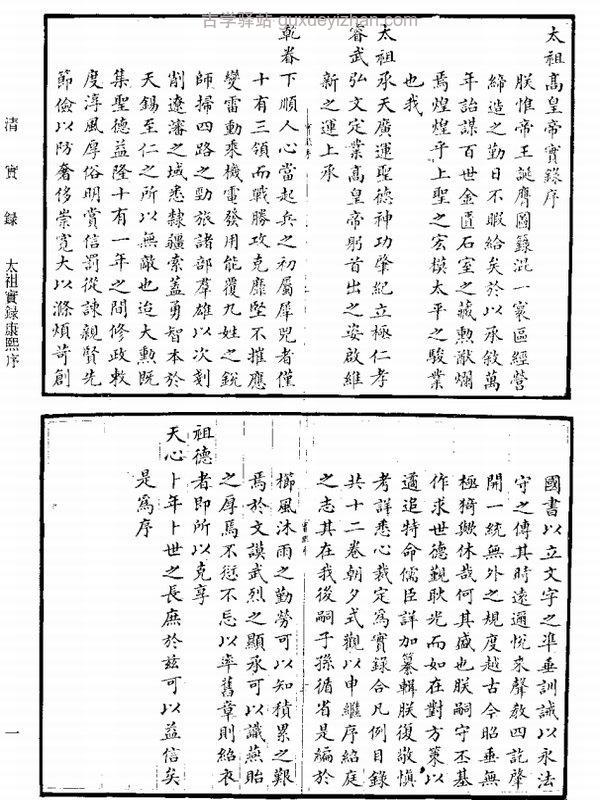 古学驿站 guxueyizhan.com
太祖高皇帝實錄序
朕惟帝王誕膺圖籙混一寰區經營
締造之勤日不暇給矣於以承敘萬
年詒謀百世金匱石室之藏勲猷爛
焉煌煌乎上聖之宏模太平之駿業
也我
太祖承天廣運聖德神功肇紀立極仁孝
睿武弘文定業高皇帝躬首出之姿啟維
新之運上承
乾眷下順人心當起兵之初屬犀兕者僅
十有三領而戰勝攻克靡堅不摧應
變雷動乘機電發用能覆九姓之銳
師掃四路之勁旅諸部羣雄以次刻
削遼瀋之域悉隸疆索蓋勇智本於
天錫至仁之所以無敵也迨大勲既
集聖德益隆十有一年之間修政敉
度淳風厚俗明賞信罰從諫親賢先
節儉以防奢侈崇寬大以滌煩苛創
國書以立文字之準垂訓誡以永法
守之傳其時遠邇悅來聲教四訖肇
開一統無外之規度越古今昭垂無
極猗歟休哉何其盛也朕嗣守丕基
作求世德覲耿光而如在對方策以
遹追特命儒臣詳加纂輯朕復敬慎
考詳悉心裁定爲實錄合凡例目錄
共十二卷朝夕式觀以申繼序紹庭
之志其在我後嗣子孫循省是編於
櫛風沐雨之勤勞可以知積累之艱
焉於文謨武烈之顯承可以識燕貽
之厚焉不愆不忘以率舊章則紹衣
祖德者即所以克享
天心卜年卜世之長庶於兹可以益信矣
是爲序
清實錄 太祖實錄康熙序 一